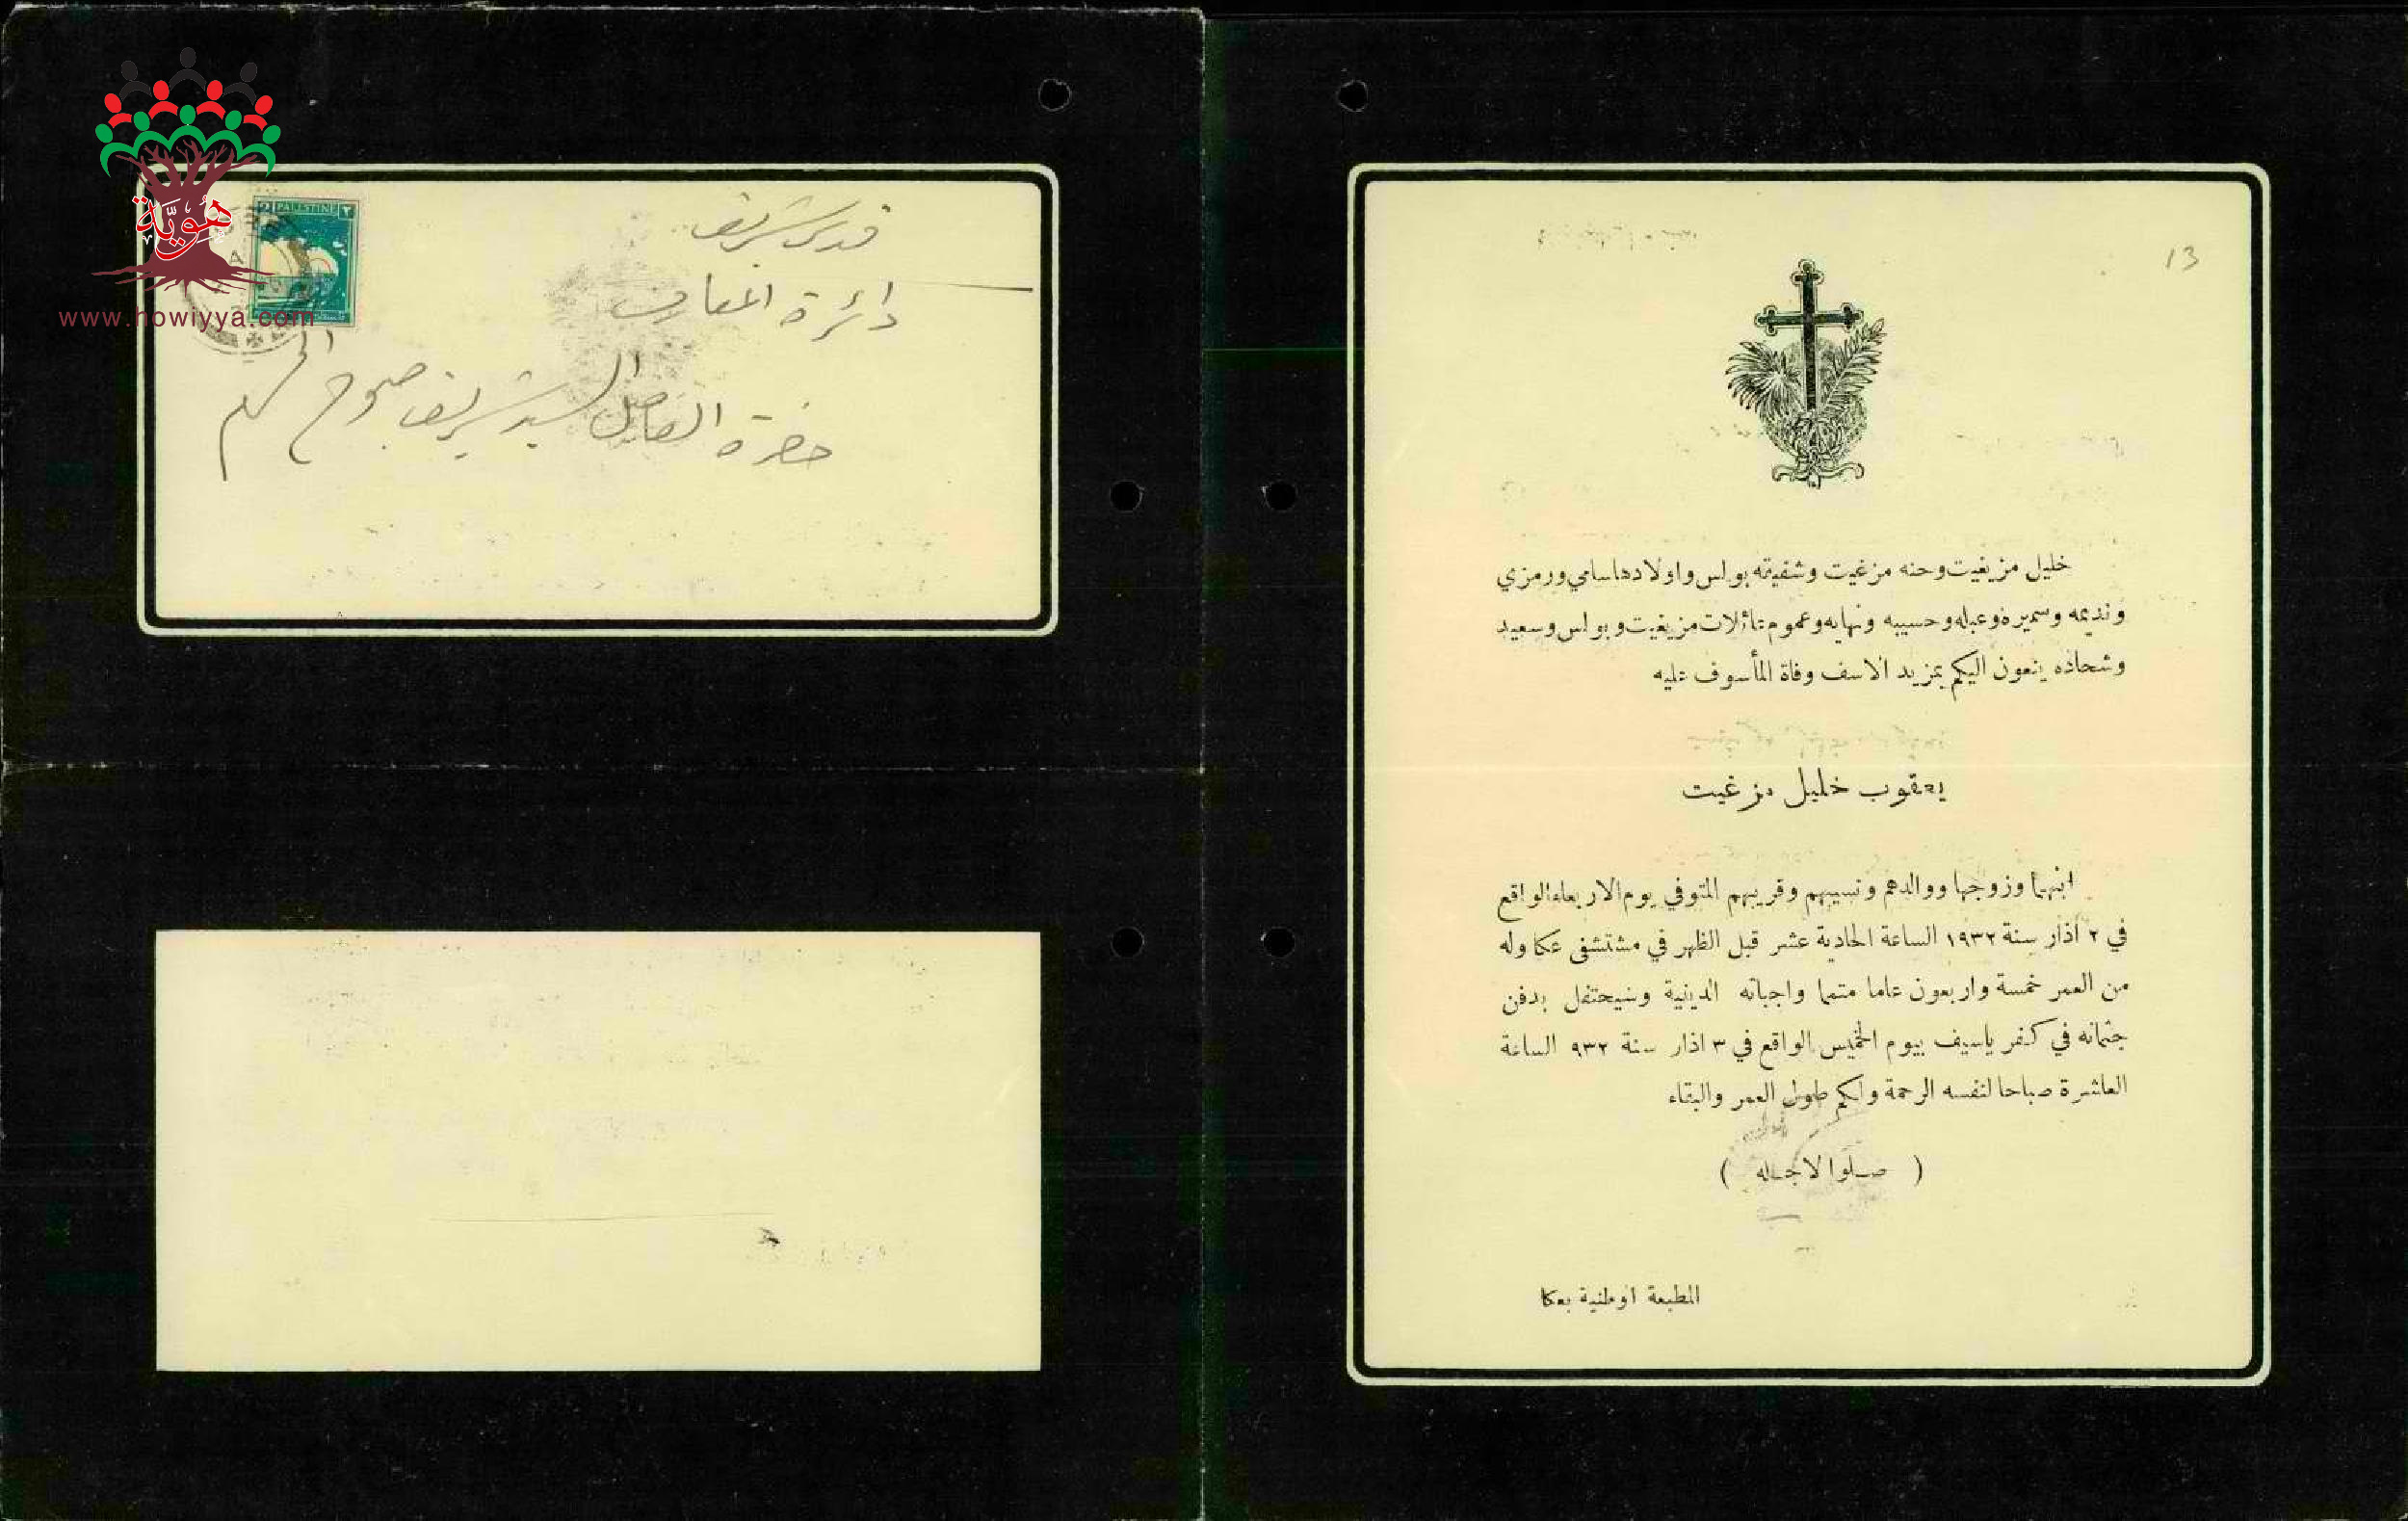 هُوِيَّة
www.howiyya.com
2 PALESTINE ٢
قدس شريف
دائرة المعارف
حضرة الفاضل السيد شريف صبوح
13
خليل مزيغيت وحنه مزغيت وشفيقه بولس واولادها سامي ورمزي
ونديمه وسميره وعبله وحسيبه ونهايه وعموم عائلات مزيغيت وبولس وسعيد
وشحاده ينعون اليكم بمزيد الاسف وفاة المأسوف عليه
يعقوب خليل مزغيت
ابنهما وزوجها ووالدهم ونسيبهم وقريبهم المتوفي يوم الاربعاء الواقع
في ٢ آذار سنة ١٩٣٢ الساعة الحادية عشر قبل الظهر في مشتشفى عكا وله
من العمر خمسة واربعون عاما متمما واجباته الدينية وسيحتفل بدفن
جثمانه في كفر ياسيف بيوم الخميس الواقع في ٣ اذار سنة ٩٣٢ الساعة
العاشرة صباحا لنفسه الرحمة ولكم طول العمر والبقاء
( صلوا لاجله )
المطبعة الوطنية بعكا